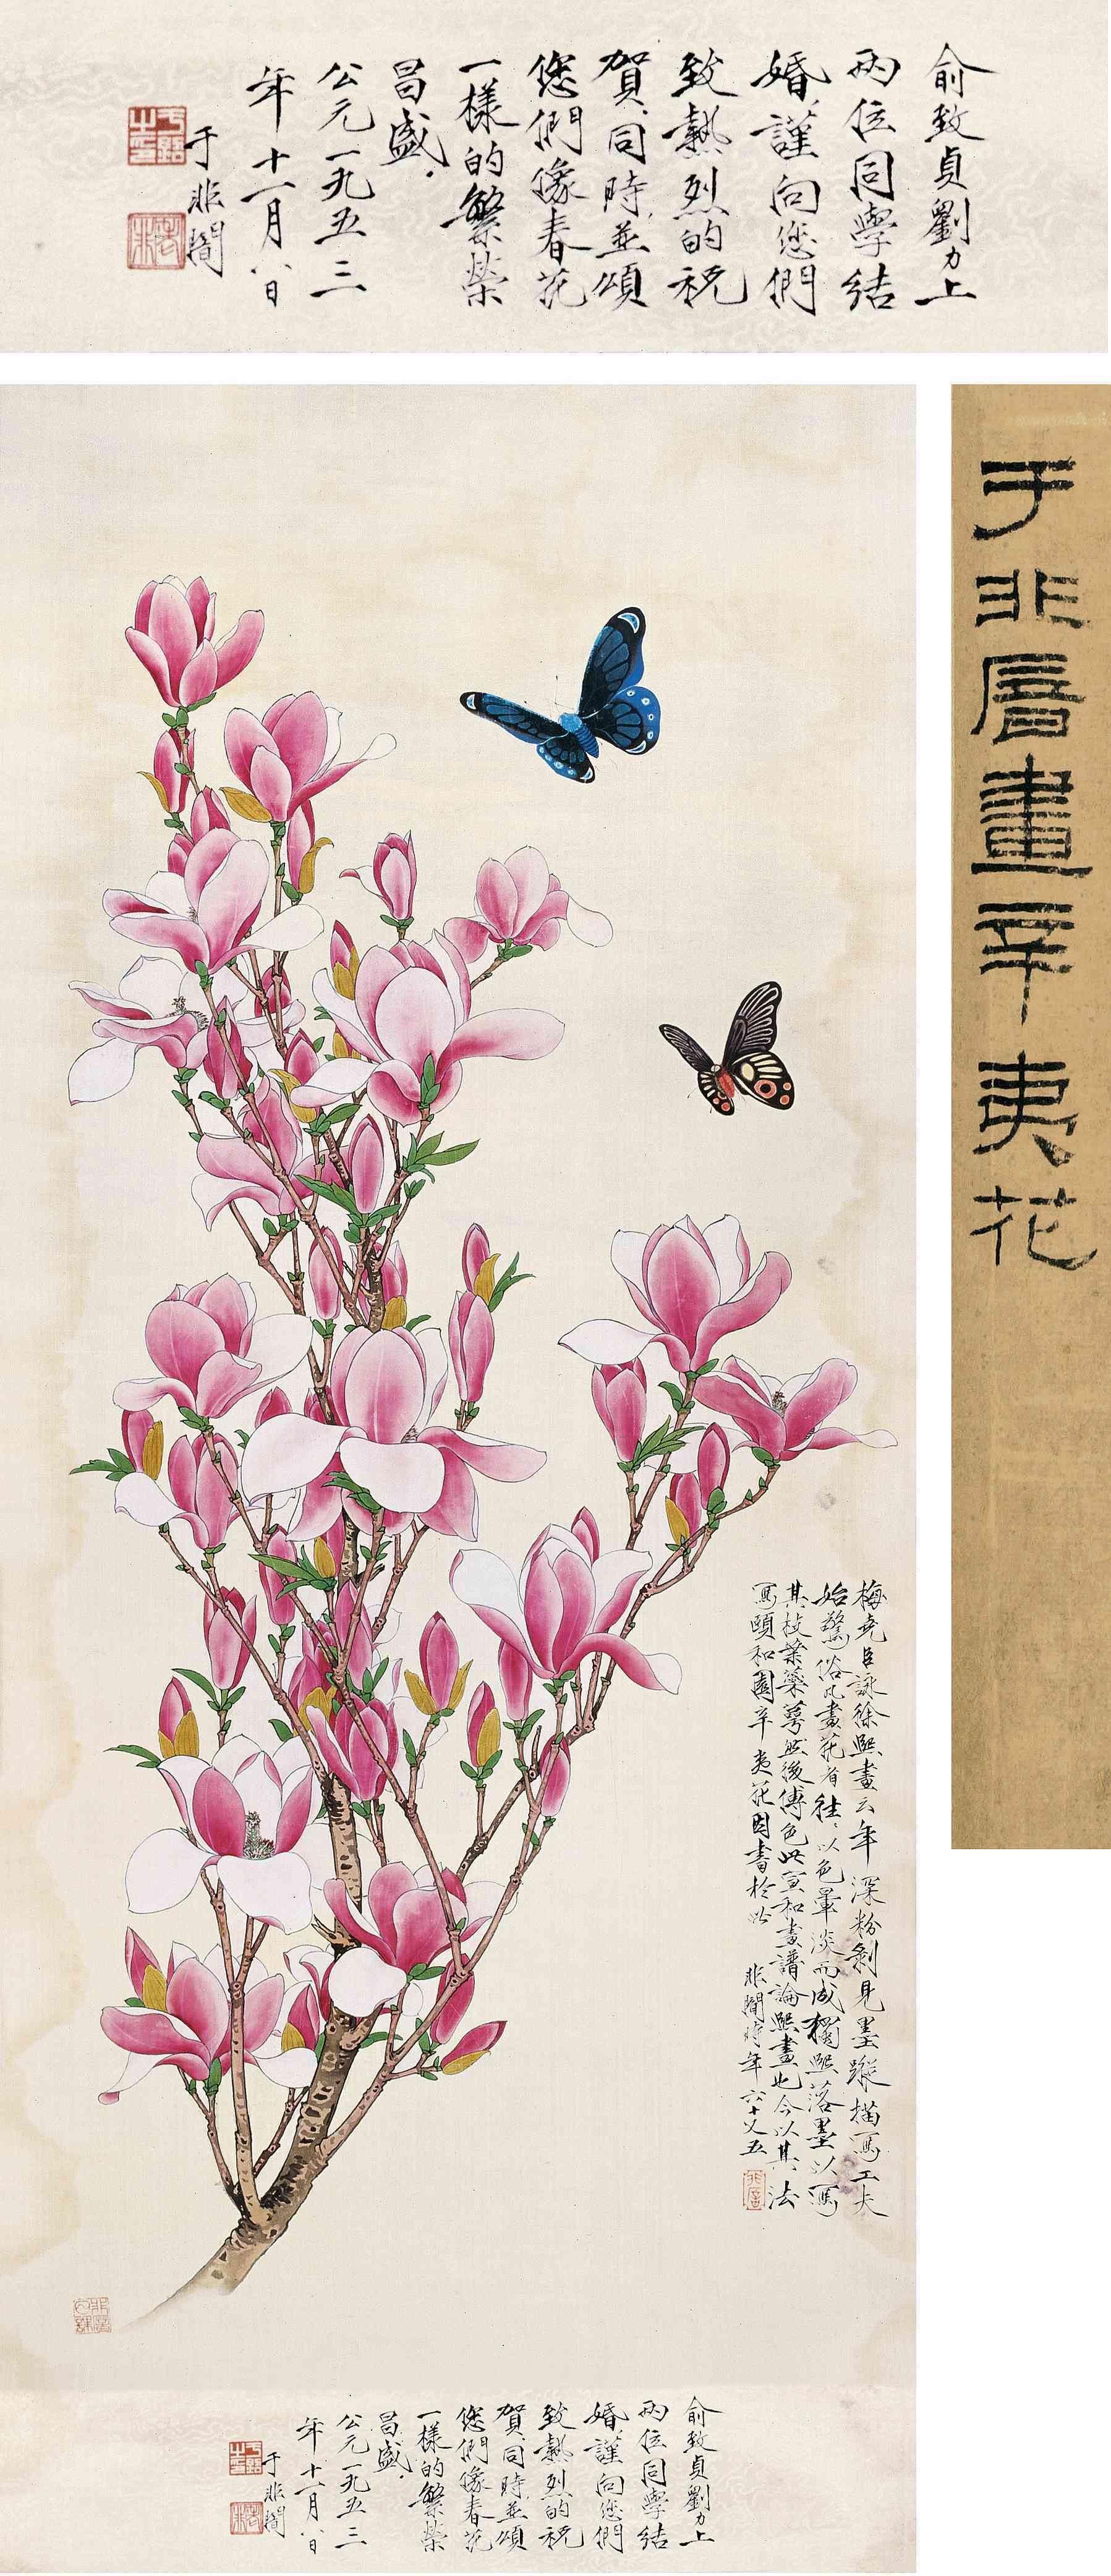 俞致貞劉力上
兩位同學結
婚謹向您們
致熱烈的祝
賀同時並頌
您們像春花
一樣的繁榮
昌盛
公元一九五三
年十一月八日
于非闇
于非厝畫辛夷花
梅堯臣詠徐熙畫云年深粉剝見墨蹤描寫工夫
始驚俗凡畫花者往往以色暈淡而成獨熙落墨以寫
其枝葉蘂萼然後傅色此宣和畫譜論熙畫也今以其法
寫頤和園辛夷花因書於此
非闇時年六十又五
俞致貞劉力上
兩位同學結
婚謹向您們
致熱烈的祝
賀同時並頌
您們像春花
一樣的繁榮
昌盛
公元一九五三
年十一月八日
于非闇